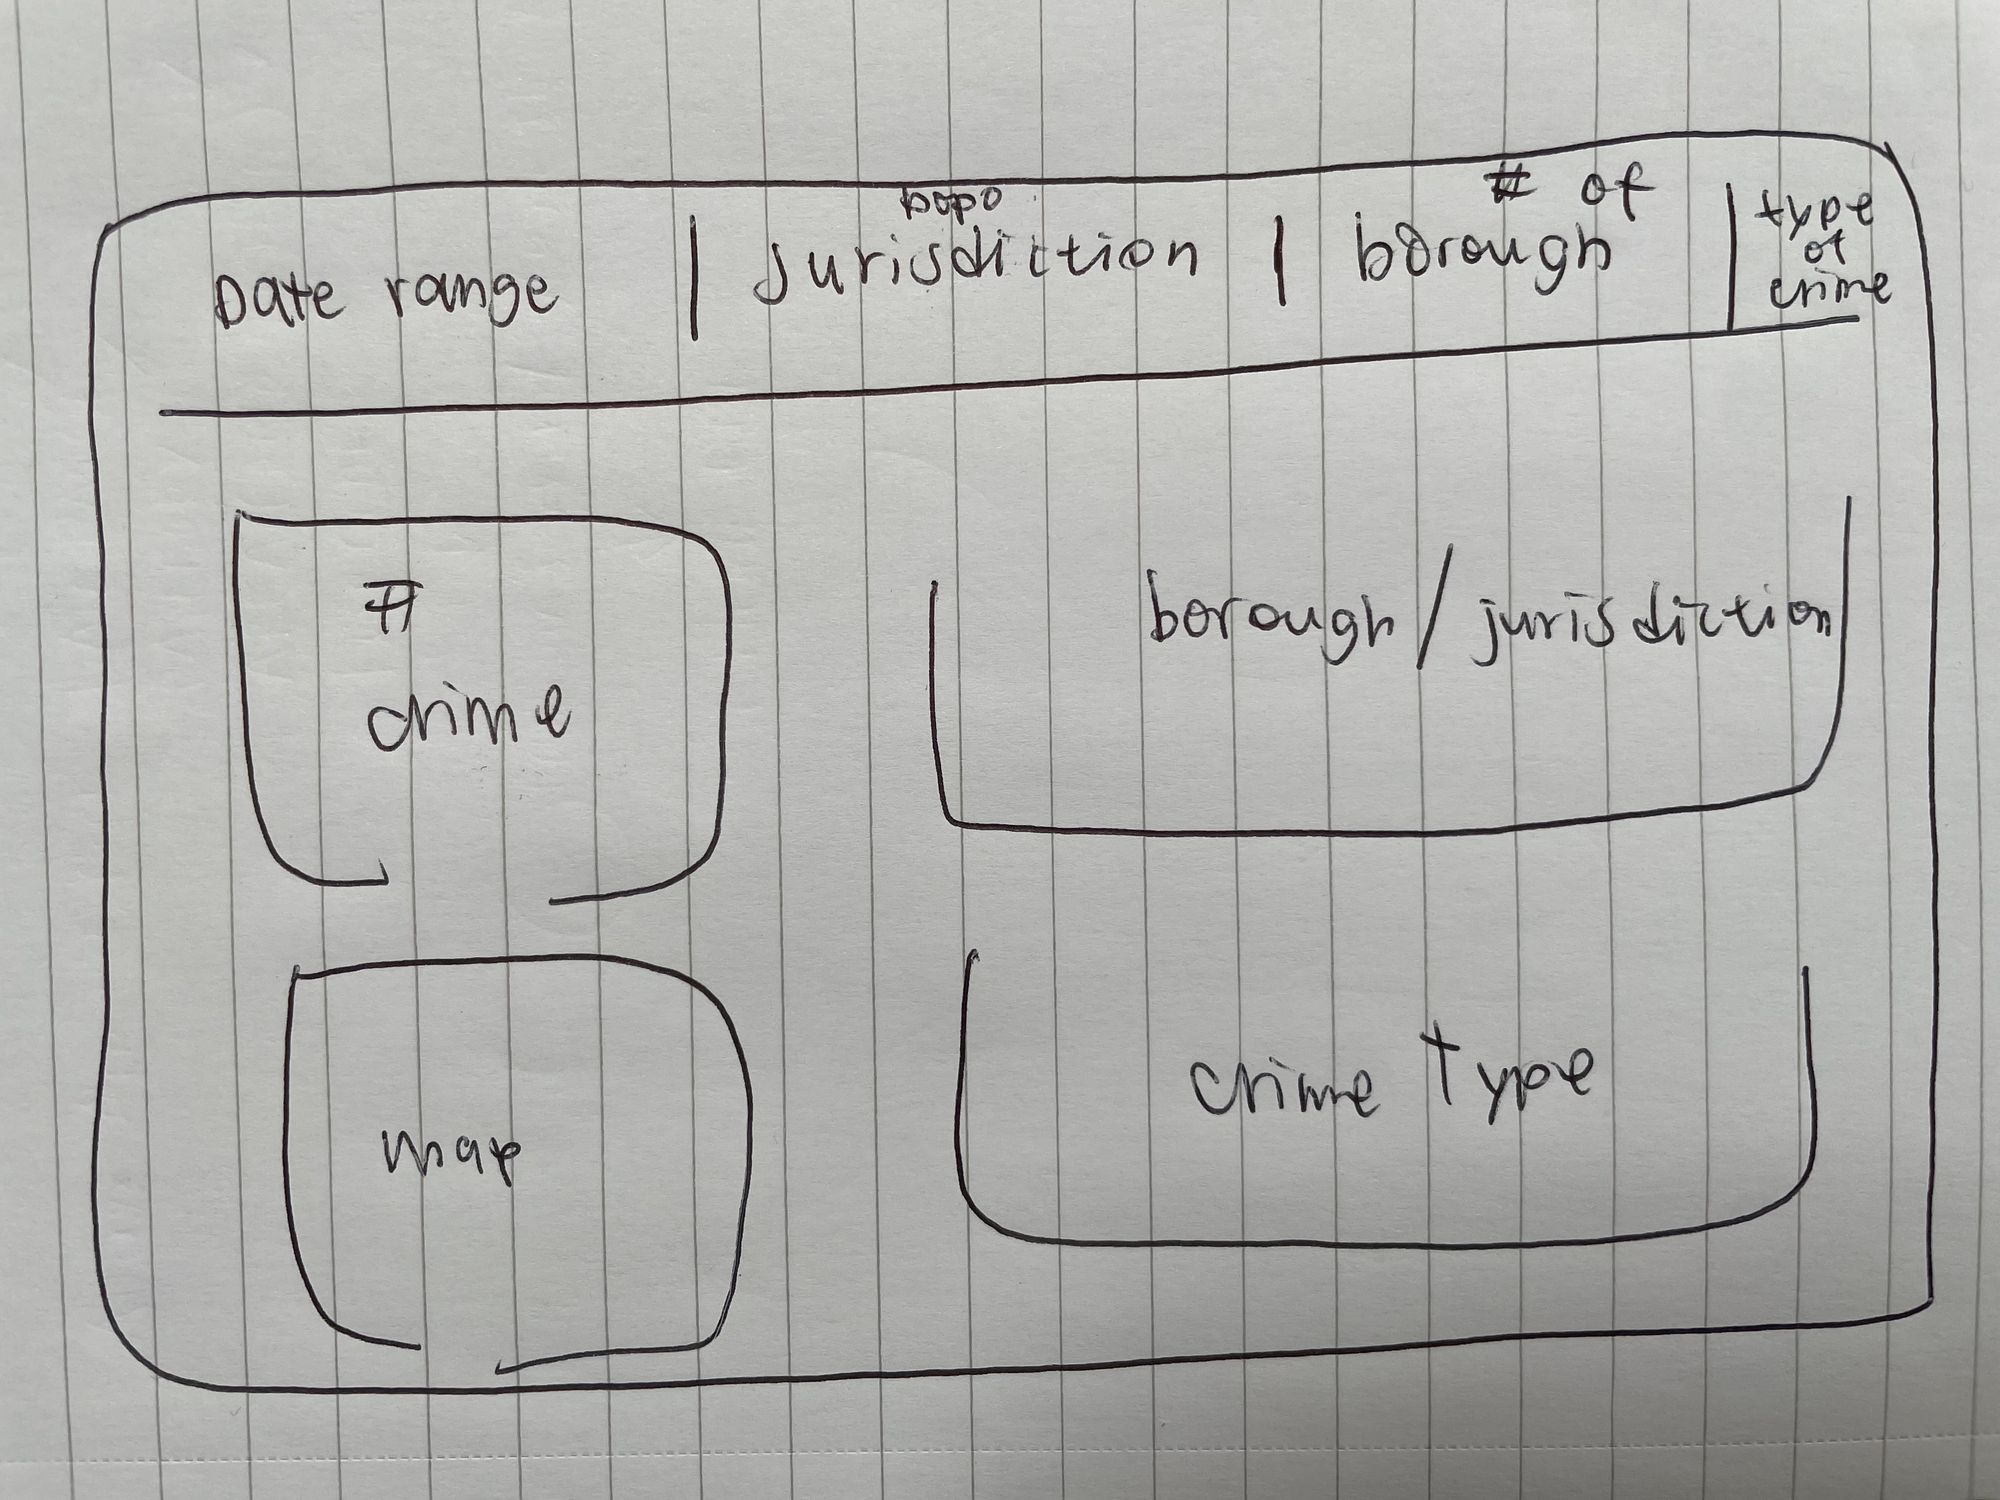 popo
# of
Date range | jurisdiction | borough | type of crime
#
crime
borough/jurisdiction
map
crime type